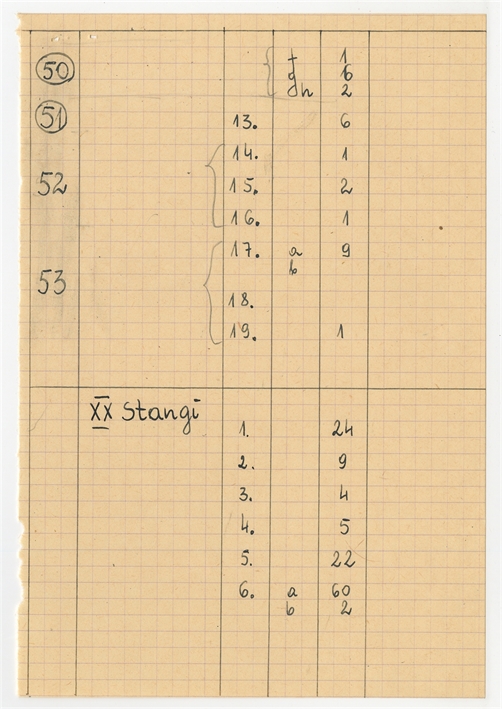 f 1
50 g 6
h 2
51 13. 6
14. 1
52 15. 2
16. 1
17. a 9
b
53
18.
19. 1
XX Stangi
1. 24
2. 9
3. 4
4. 5
5. 22
6. a 60
b 2